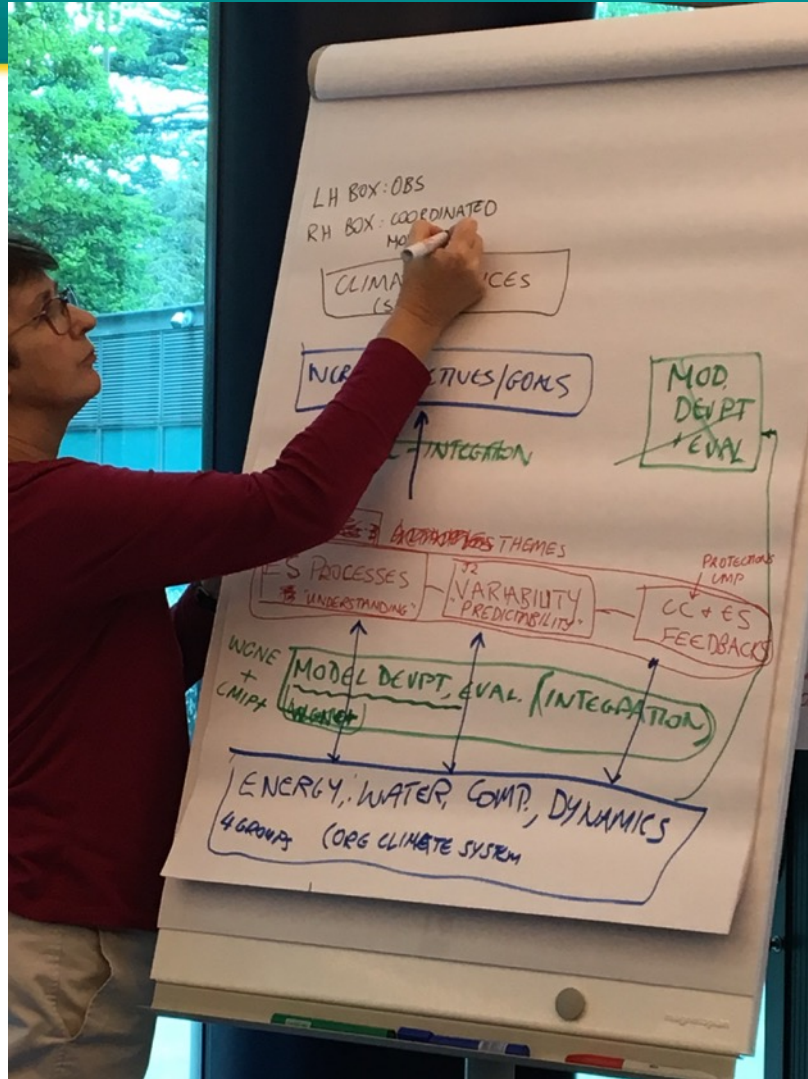 LH BOX: OBS
RH BOX: COORDINATED
CLIMA ICES
WCR CTIVES/GOALS
MOD.
DEVPT
+ EVAL
INTEGRATION
THEMES
PROJECTIONS
ES PROCESSES
"UNDERSTANDING"
VARIABILITY
PREDICTABILITY
CC + ES
FEEDBACKS
WGNE
+
CMIP+
MODEL DEVPT, EVAL. (INTEGRATION)
ENERGY, WATER, COMP., DYNAMICS
4 GROUPS (ORG CLIMATE SYSTEM